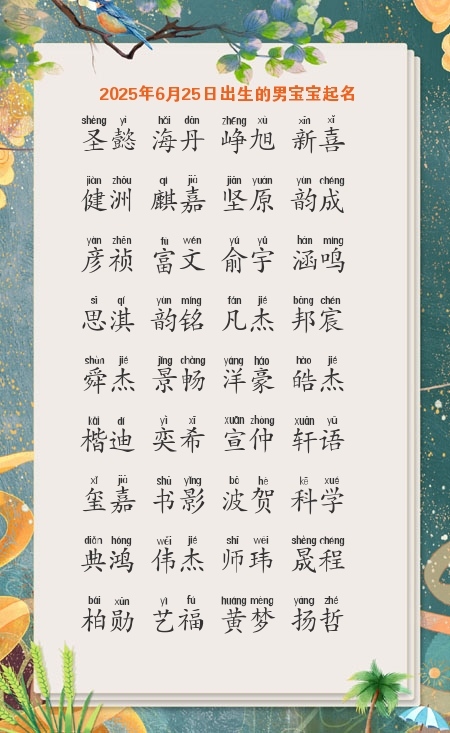 2025年6月25日出生的男宝宝起名
shèng yì hǎi dān zhēng xù xīn xǐ
圣懿 海丹 峥旭 新喜
jiàn zhōu qí jiā jiān yuán yùn chéng
健洲 麒嘉 坚原 韵成
yàn zhēn fù wén yú yǔ hán míng
彦祯 富文 俞宇 涵鸣
sī qí yùn míng fán jié bāng chén
思淇 韵铭 凡杰 邦宸
shùn jié jǐng chàng yáng háo hào jié
舜杰 景畅 洋豪 皓杰
kǎi dí yì xī xuān zhòng xuān yǔ
楷迪 奕希 宣仲 轩语
xǐ jiā shū yǐng bō hè kē xué
玺嘉 书影 波贺 科学
diǎn hóng wěi jié shī wěi shèng chéng
典鸿 伟杰 师玮 晟程
bǎi xūn yì fú huáng mèng yáng zhé
柏勋 艺福 黄梦 扬哲